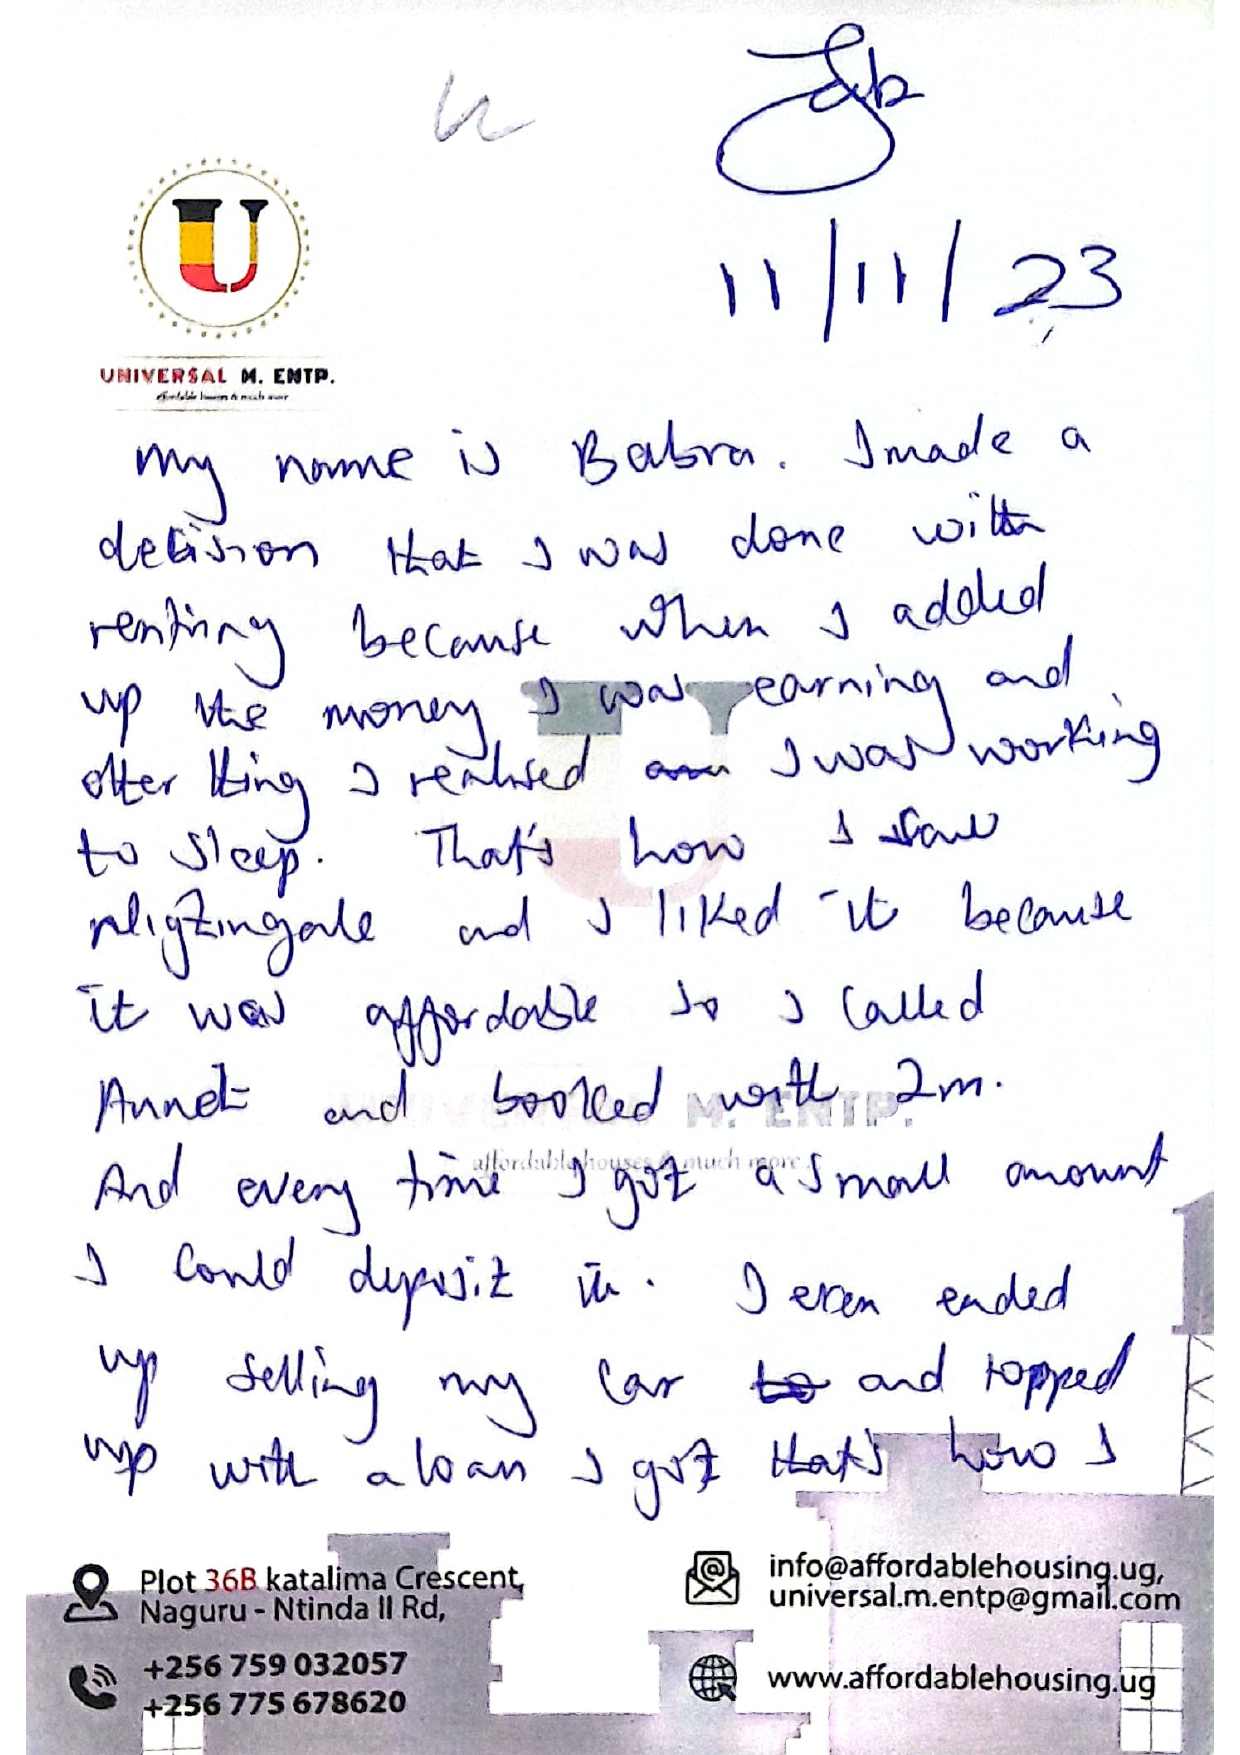 11/11/23
U
UNIVERSAL M. ENTP.
affordable houses & much more
my name is Babra. I made a
decision that I was done with
renting because when I added
up the money I was earning and
other thing I realised I was working
to sleep. That's how I saw
and I liked it because
it was affordable so I called
Annet and booked worth 2m.
M. ENTP.
affordable houses & much more
And every time I got a small amount
I could deposit in. I even ended
up selling my car to and topped
up with a loan I got that's how I
Plot 36B katalima Crescent,
Naguru - Ntinda II Rd,
+256 759 032057
+256 775 678620
info@affordablehousing.ug,
universal.m.entp@gmail.com
www.affordablehousing.ug